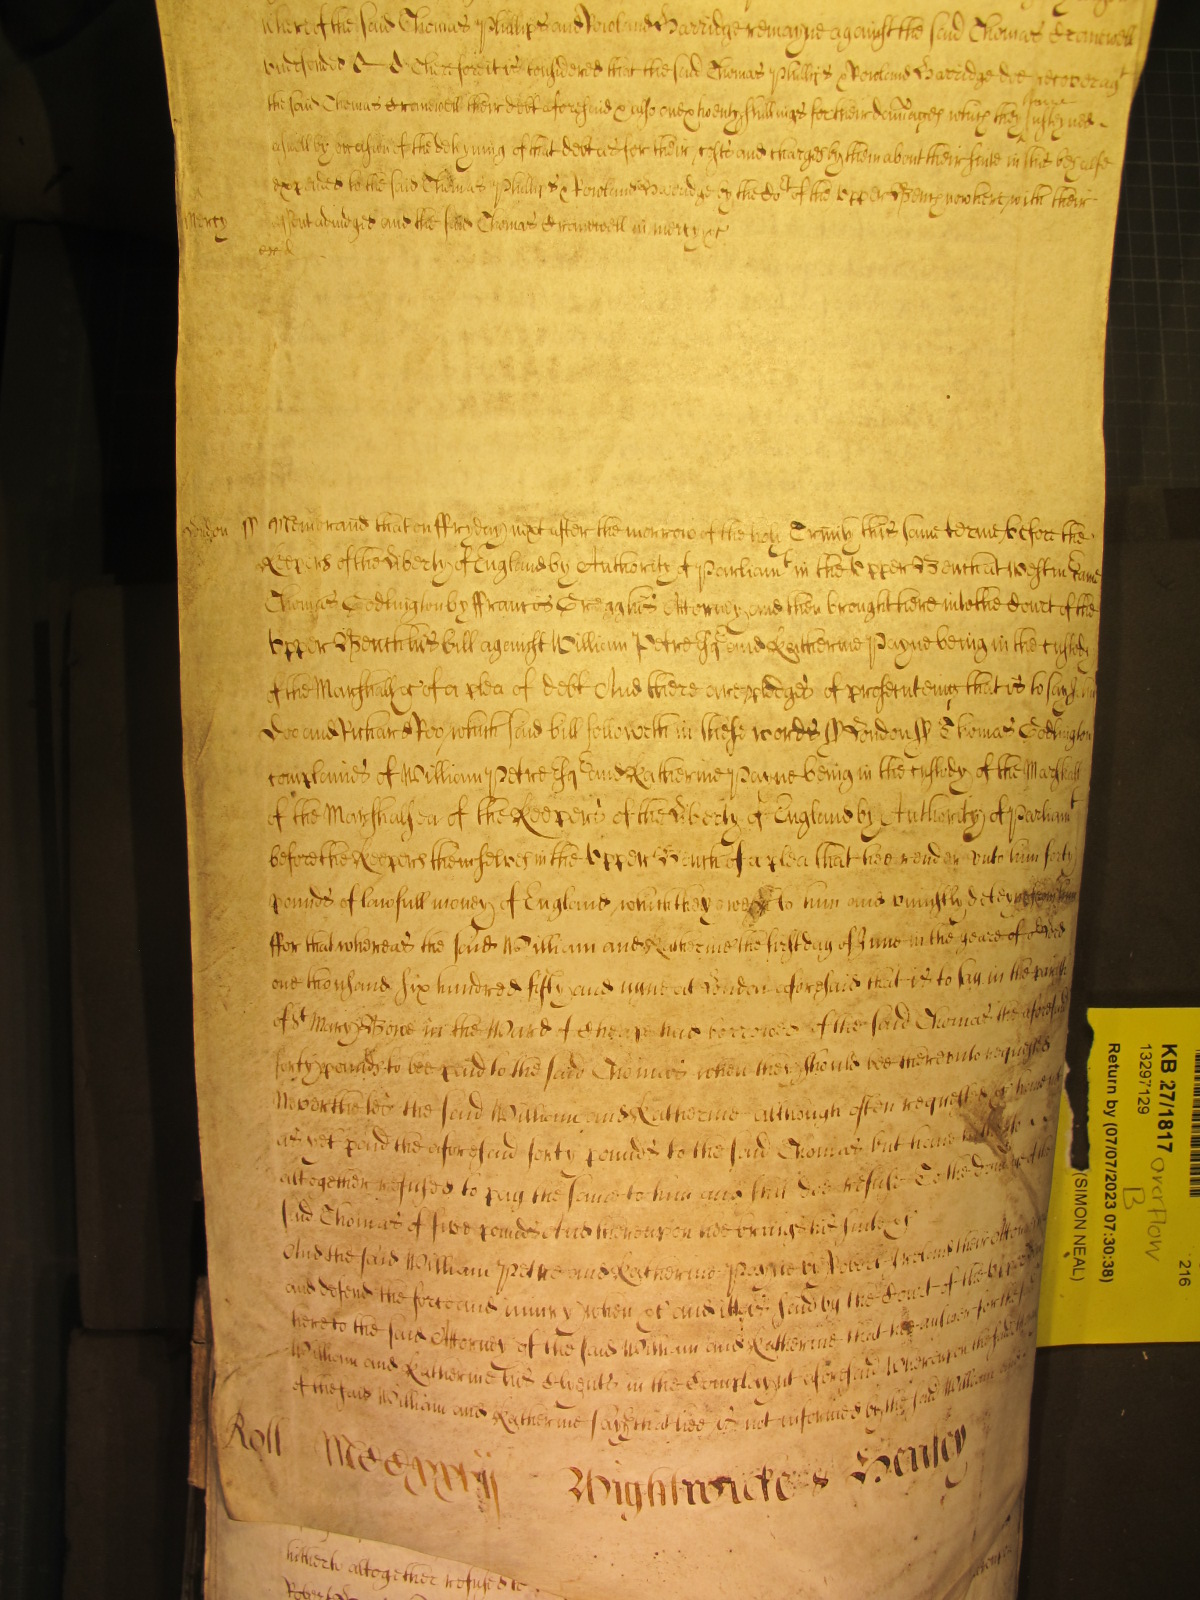 whereof the said Thomas Phillips and Rowland Barridge remayne against the said Thomas Cranwell
undefended &c &c Therefore it is considered that the said Thomas Phillips & Rowland Barridge doe recover agt
the said Thomas Cranwell their debt aforesaid & also one & twenty shillings for their dammages which they have susteyned
aswell by occasion of the deteyning of that debt as for their costs and charges by them about their suite in this behalfe
expended to the said Thomas Phillips & Rowland Barridge by the Cort of the Upper Bench now here with their
assent adiudged and the said Thomas Cranwell in mercy &c
Mercy
London ss Memorand that on ffryday next after the morrow of the holy Trinity this same terme before the
Keepers of the Liberty of England by Authority of Parliamt in the Upper Bench at Westm came
Thomas Godlington by ffrancis Gregg his Attorney and then brought here into the Court of the
Upper Bench his bill against William Petre Esqr and Katherine Payne being in the custody
of the Marshall &c of a plea of debt And there are pledges of prosecuteing that is to say John
Doe and Richard Roe which said bill followeth in these words ss London ss Thomas Godlington
complaines of William Petre Esqr and Katherine Payne being in the custody of the Marshall
of the Marshalsea of the Keepers of the Liberty of England by Authority of Parliamt
before the Keepers themselves in the Upper Bench of a plea that they render unto him forty
pounds of lawfull money of England which they owe to him and uniustly deteyne from him
ffor that whereas the said William and Katherine the first day of June in the yeare of or Lord
one thousand six hundred fifty and nyne at London aforesaid that is to say in the parish
of St Mary Bowe in the Ward of Cheape had borrowed of the said Thomas the aforesaid
forty pounds to bee paid to the said Thomas when they should bee thereunto requested
Neverthelesse the said William and Katherine although often requested &c have not
as yet paid the aforesaid forty pounds to the said Thomas but have hitherto
altogether refused to pay the same to him and still doe refuse To the damage of the
said Thomas of five pounds And thereupon hee brings his suite &c
And the said William Petre and Katherine Payne by Robert Ireland their Attorney
and defend the force and iniury when &c and itt is said by the Court of the Upper
here to the said Attorney of the said William and Katherine that hee answer for the said
William and Katherine his Clyents in the Complaynt aforesaid Whereupon the said Attorney
of the said William and Katherine sayth that hee is not informed by the said William and
Roll MCCxxvij Wightwicke & Henley
hitherto altogether refused to
Robert
KB 27/1817 overflow B
13297129
Return by (07/07/2023 07:30:38)
(SIMON NEAL)
216